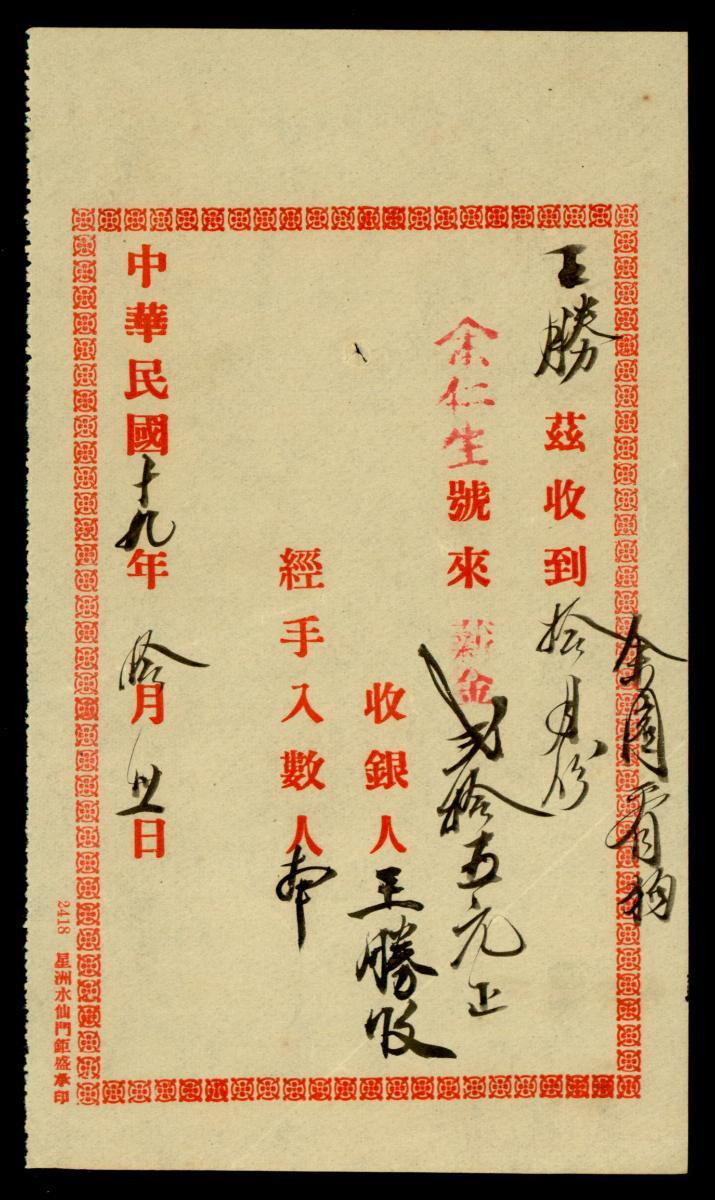 余園看狗
王勝 茲收到 拾月份
余仁生號來 薪金 弍拾五元正
收銀人 王勝收
經手入數人
中華民國十九年 拾月 卅日
2418 星洲水仙門鉅盛承印